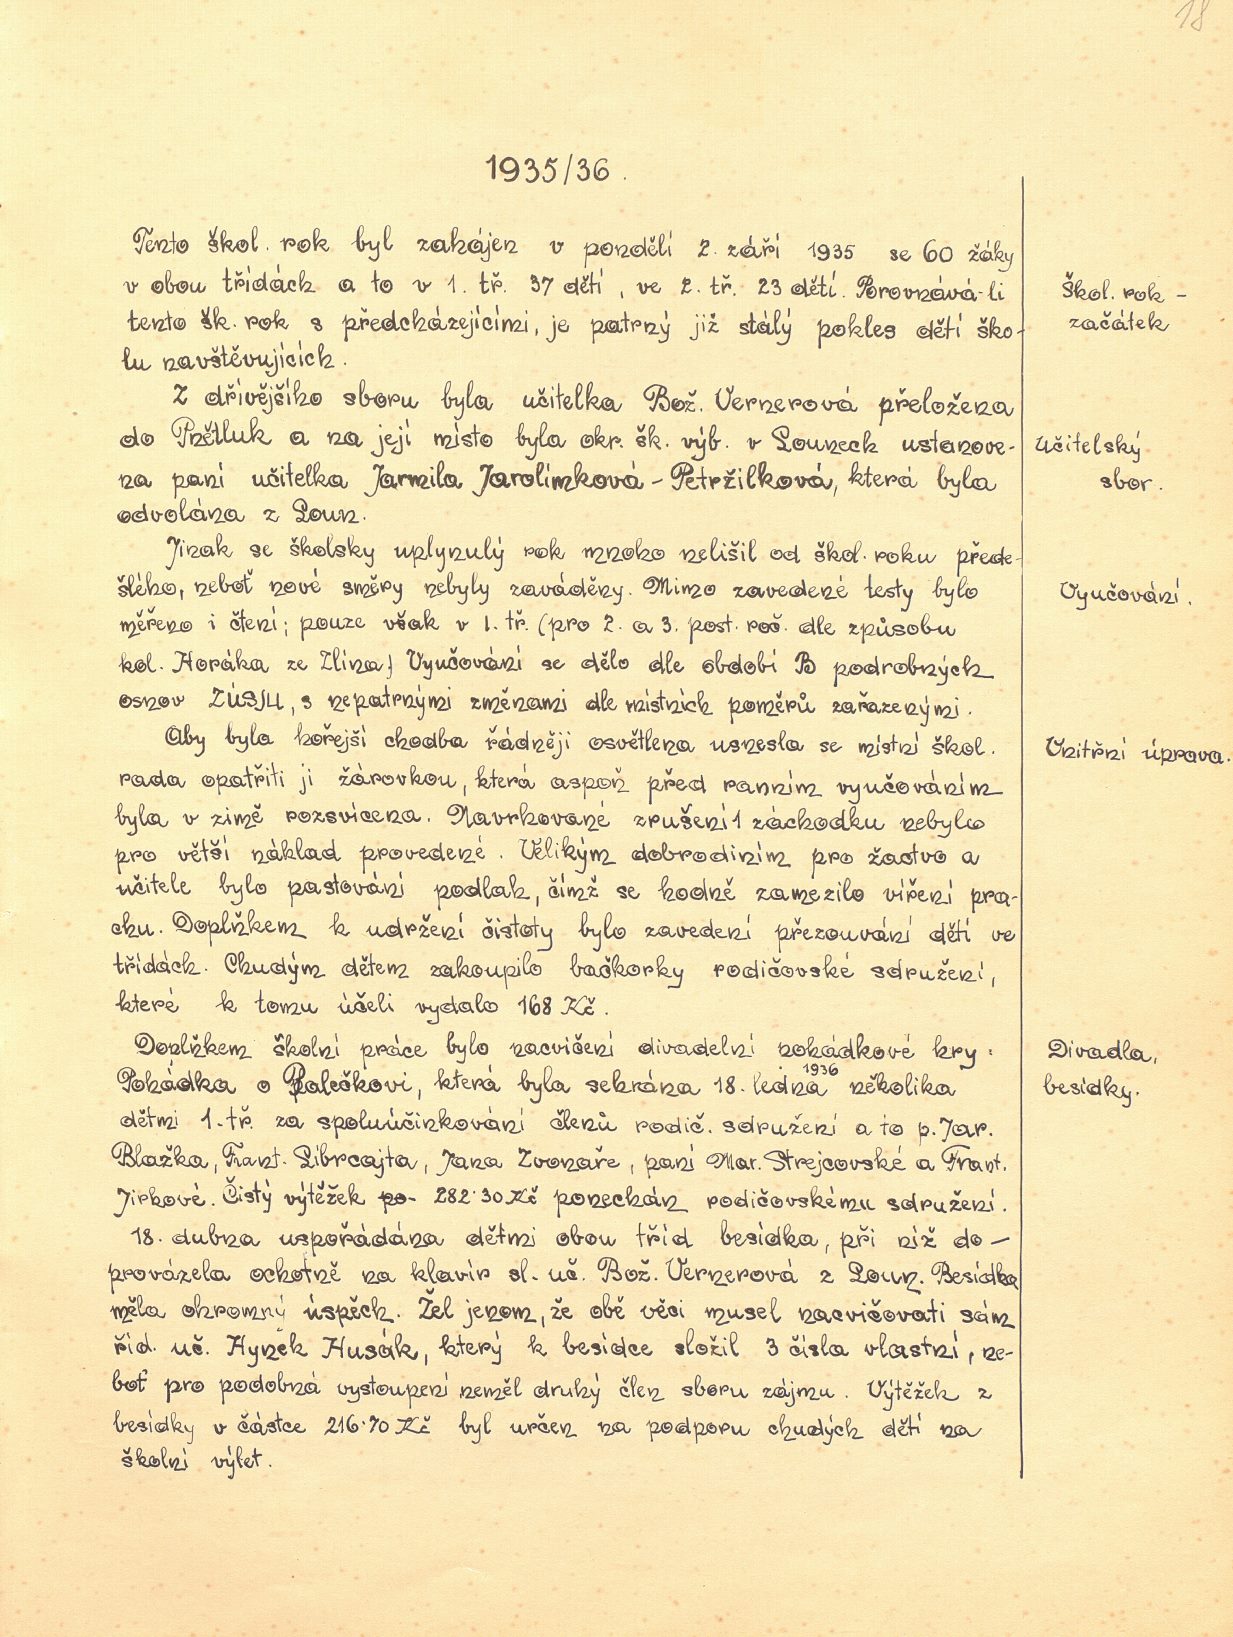 18
1935/36.
Tento škol. rok byl zahájen v pondělí 2. září 1935 se 60 žáky
v obou třídách a to v 1. tř. 37 dětí, ve 2. tř. 23 dětí. Porovnává-li
Škol. rok -
tento šk. rok s předcházejícími, je patrný již stálý pokles dětí ško-
začátek
lu navštěvujících.
Z dřívějšího sboru byla učitelka Bož. Vernerová přeložena
do Pnětluk a na její místo byla okr. šk. výb. v Lounech ustanove-
Učitelský
na paní učitelka Jarmila Jarolímková - Petržilková, která byla
sbor.
odvolána z Loun.
Jinak se školsky uplynulý rok mnoho nelišil od škol. roku přede-
šlého, neboť nové směry nebyly zaváděny. Mimo zavedené testy bylo
Vyučování.
měřeno i čtení; pouze však v 1. tř. (pro 2. a 3. post. roč. dle způsobu
kol. Horáka ze Zlína) Vyučování se dělo dle období B podrobných
osnov ZÚŠJ4, s nepatrnými změnami dle místních poměrů zařazenými.
Aby byla hořejší chodba řádněji osvětlena usnesla se místní škol.
Vnitřní úprava.
rada opatřiti ji žárovkou, která aspoň před ranním vyučováním
byla v zimě rozsvícena. Navrhované zrušení 1 záchodku nebylo
pro větší náklad provedené. Velikým dobrodiním pro žactvo a
učitele bylo pastování podlah, čímž se hodně zamezilo víření pra-
chu. Doplňkem k udržení čistoty bylo zavedení přezouvání dětí ve
třídách. Chudým dětem zakoupilo bačkorky rodičovské sdružení,
které k tomu účeli vydalo 168 Kč.
Doplňkem školní práce bylo nacvičení divadelní pohádkové hry:
Divadla,
Pohádka o Palečkovi, která byla sehrána 18. ledna 1936 několika
besídky.
dětmi 1. tř. za spoluúčinkování členů rodič. sdružení a to p. Jar.
Blažka, Frant. Librcajta, Jana Zvonaře, paní Mar. Strejcovské a Frant.
Jirkové. Čistý výtěžek po- 282·30 Kč ponechán rodičovskému sdružení.
18. dubna uspořádána dětmi obou tříd besídka, při níž do-
provázela ochotně na klavír sl. uč. Bož. Vernerová z Loun. Besídka
měla ohromný úspěch. Žel jenom, že obě věci musel nacvičovati sám
říd. uč. Hynek Husák, který k besídce složil 3 čísla vlastní, ne-
boť pro podobná vystoupení neměl druhý člen sboru zájmu. Výtěžek z
besídky v částce 216·70 Kč byl určen na podporu chudých dětí na
školní výlet.